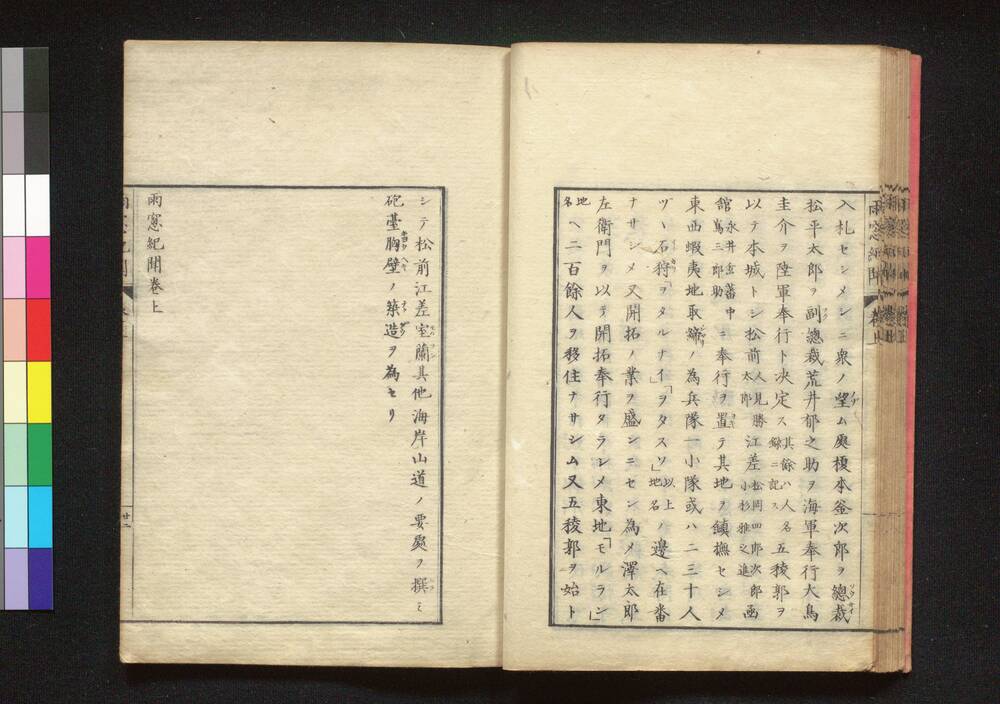 入札センメシニ衆ノ望ム處榎本釜次郎ヲ總裁
松平太郎ヲ副總裁荒井郁之助ヲ海軍奉行大鳥
圭介ヲ陸軍奉行ト决定ス其餘ハ人名録ニ記ス五稜郭ヲ
以テ本城トシ松前人見勝太郎江差松岡四郎次郎小杉雅之進函
館永井玄蕃中島三郎助ニ奉行ヲ置テ其地ヲ鎮撫セシメ
東西蝦夷地取締ノ為兵隊一小隊或ハ二三十人
ヅヽ石狩「ヲタルナイ」「ヲタスソ」以上地名ノ邊ヘ在番
ナサシメ又開拓ノ業ヲ盛ンニセン為メ澤太郎
左衛門ヲ以テ開拓奉行タラシメ東地「モルラン」
地名ヘ二百餘人ヲ移住ナサシム又五稜郭ヲ始ト
シテ松前江差室蘭其他海岸山道ノ要處ヲ撰ミ
砲臺胸壁ノ築造ヲ為セリ
雨窓紀聞卷上
廿二